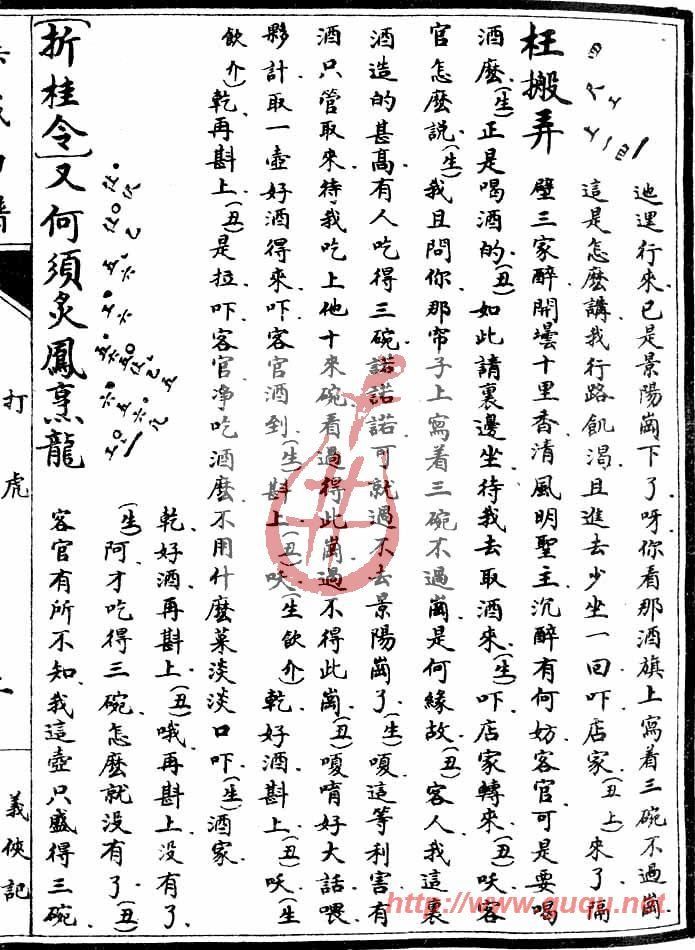 迆逞行來.已是景陽崗下了呀你看那酒旗上寫着三碗不過崗
這是怎麽講我行路飢渴.且進去少坐一回吓店家.(丑上)來了隔
枉搬弄 壁三家醉開壜十里香清風明聖主沉醉有何妨客官可是要喝
酒麽.(生)正是喝酒的.(丑)如此請裏邊坐待我去取酒來.(生)吓店家轉來.(丑)吷客
官怎麽説.(生)我且問你那帘子上寫着三碗不過崗是何緣故.(丑)客人我這裏
酒造的甚高有人吃得三碗諾諾諾可就過不去景陽崗了.(生)嗄這等利害有
酒只管取來待我吃上他十來碗看過得此崗過不得此崗.(丑)嗄唷好大話喂
夥計取一壺好酒得來吓客官酒到.(生)斟上.(丑)吷.(生飲介)乾.好酒斟上.(丑)吷.(生
飲介)乾再斟上.(丑)是拉吓客官净吃酒麽不用什麽菜淡淡口吓.(生)酒家
乾.好酒再斟上.(丑)哦再斟上.没有了.
(生)阿才吃得三碗.怎麽就没有了.(丑)
[折桂令]又何須炙鳳烹龍 客官有所不知.我這壺只盛得三碗.
打虎
義俠記
http://www.guqu.net